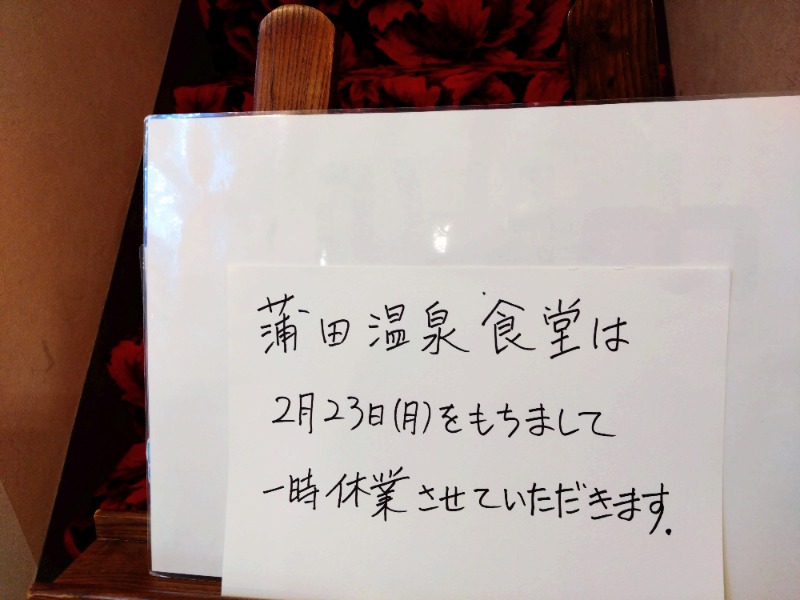 蒲田温泉食堂は
2月23日(月)をもちまして
一時休業させていただきます.